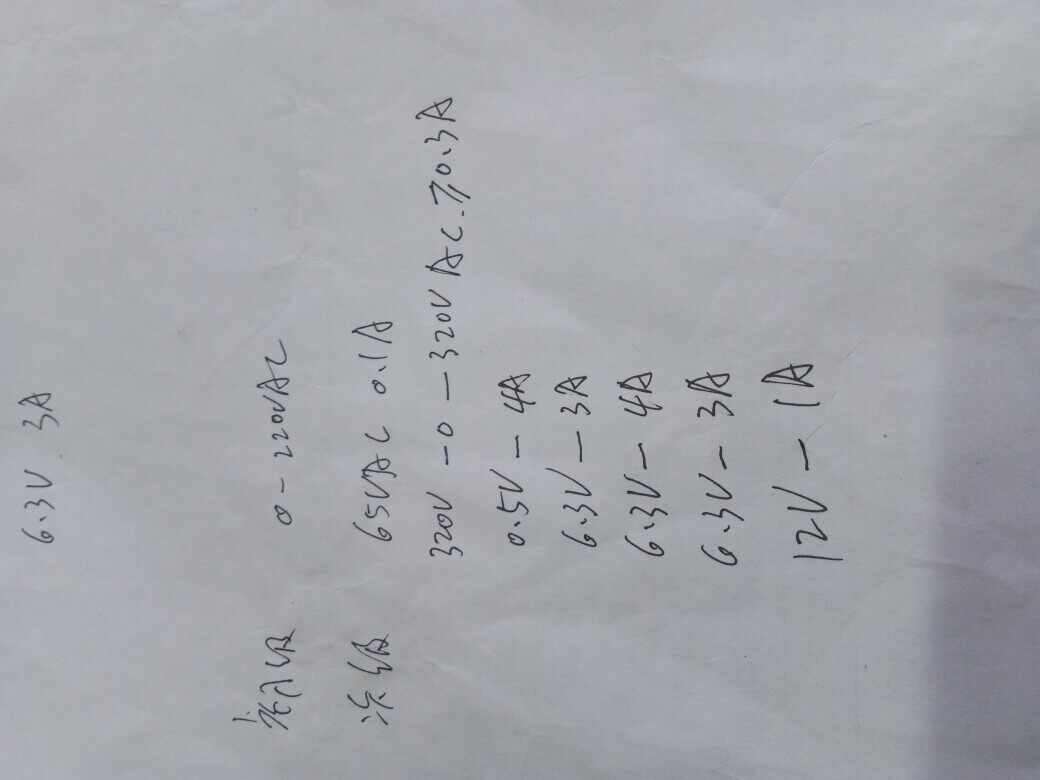 6.3V 3A
初级 0-220VAC
次级 65VAC 0.1A
320V-0-320VAC.≥0.3A
0.5V-4A
6.3V-3A
6.3V-4A
6.3V-3A
12V-1A